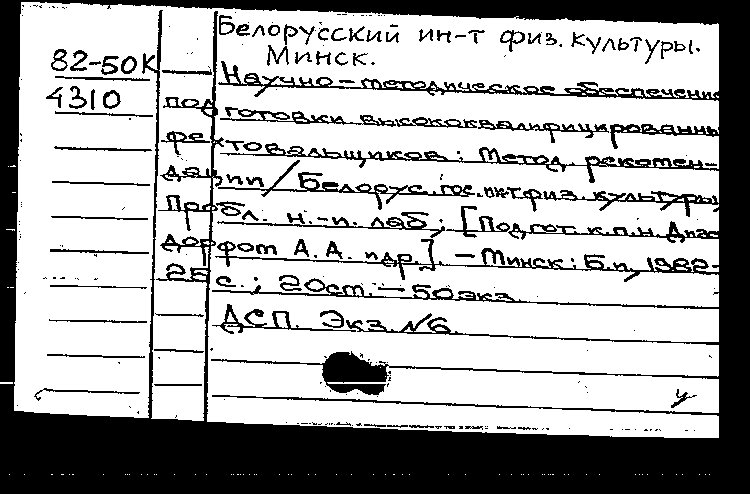 Белорусский ин-т физ. культуры.
Минск.
82-50К
4310
Научно-методическое обеспечение
подготовки высококвалифицированны
фехтовальщиков: Метод. рекомен-
дации / Белорус. гос. ин-т физ. культуры,
Пробл. н.-и. лаб.; [Подгот. к.п.н.
дорфом А. А. и др.]. – Минск: Б.и., 1982-
25 с.; 20 см. – 50 экз.
ДСП. Экз. №6.